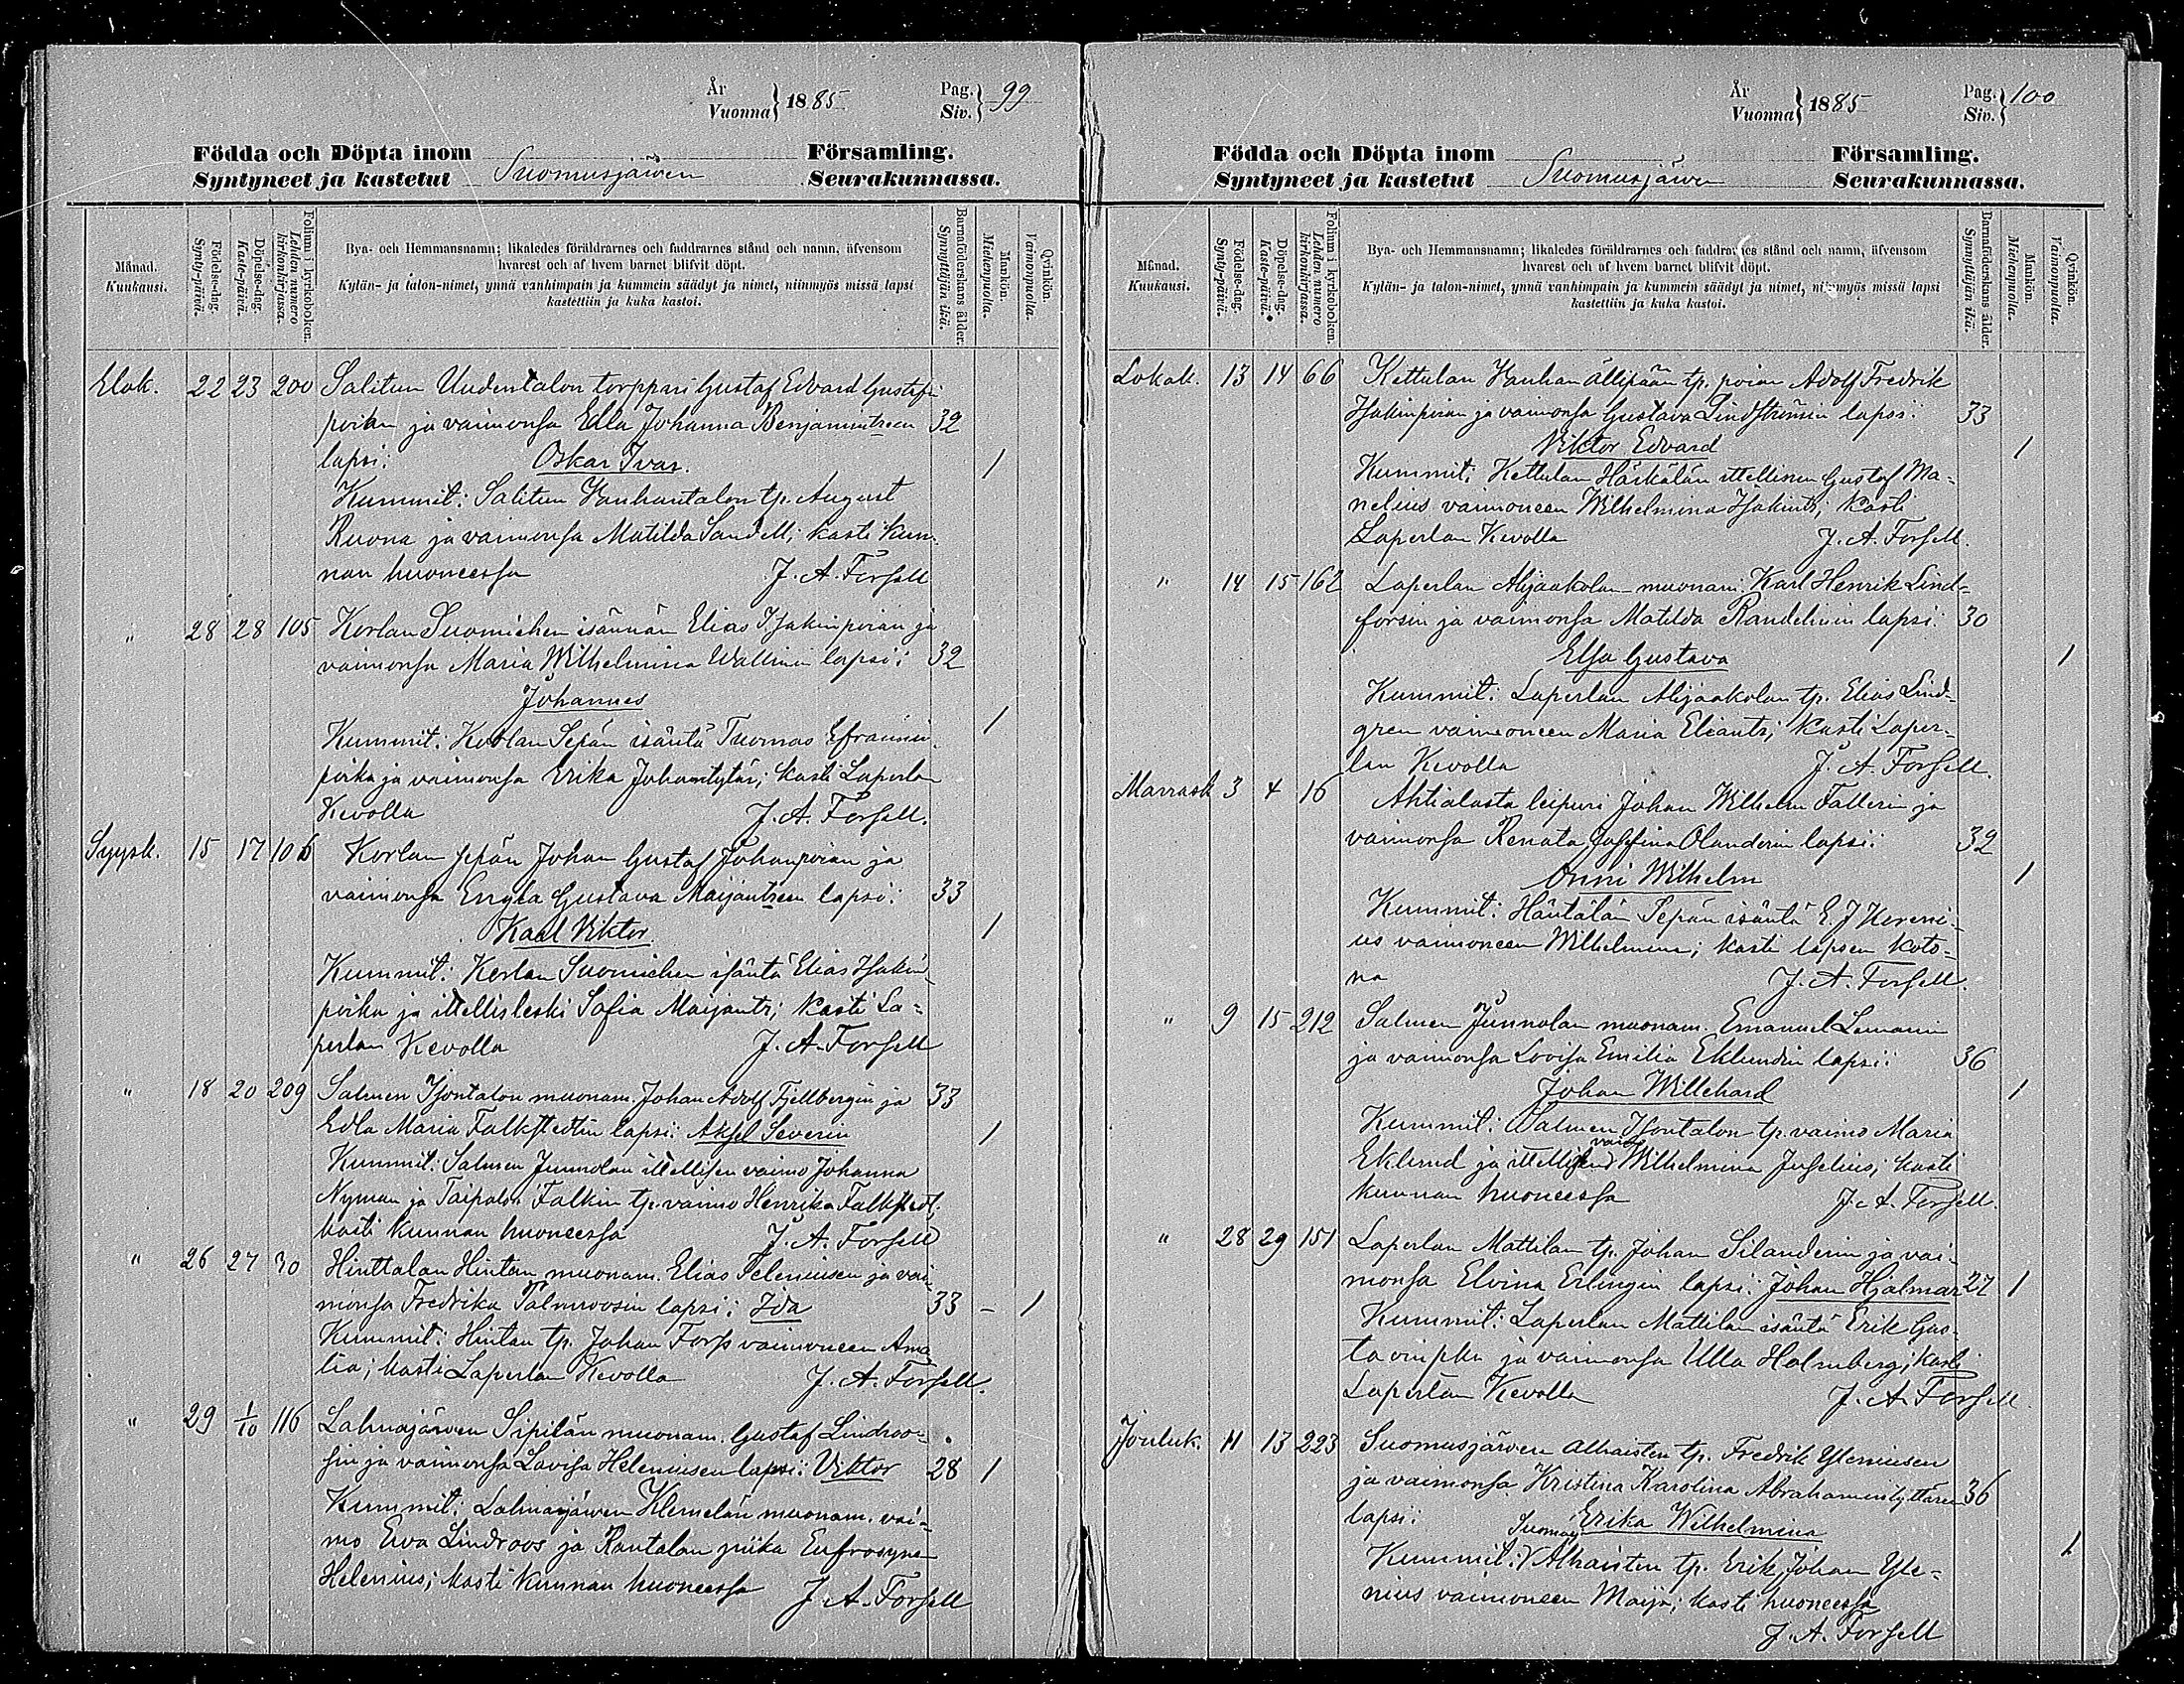 År Vuonna } 1885 Pag. Siv. } 99
Födda och Döpta inom Församling.
Syntyneet ja kastetut Suomusjärven Seurakunnassa.
Månad. Kuukausi.
Födelse-dag. Synty-päivä.
Döpelse-dag. Kaste-päivä.
Folium i kyrkoboken. Lehden numero kirkonkirjassa.
Bya- och Hemmansnamn; likaledes föräldrarnes och faddrarnes stånd och namn, äfvensom
hvarest och af hvem barnet blifvit döpt.
Kylän- ja talon-nimet, ynnä vanhimpain ja kummein säädyt ja nimet, niinmyös missä lapsi
kastettiin ja kuka kastoi.
Barnaföderskans ålder. Synnyttäjän ikä.
Mankön. Miehenpuolla.
Qvinkön. Vaimonpuolla.
Elok. 22 23 200 Salitun Uudentalon torppari Gustaf Edvard Gustafin
pojan ja vaimonsa Edla Johanna Benjamintreen 32
lapsi: Oskar Ivar. 1
Kummit: Salitun Vanhantalon tp. August
Ruona ja vaimonsa Matilda Sandell; kasti kun-
nan huoneessa J. A. Forsell
" 28 28 105 Korlan Suomiehen isännän Elias Isakinpoian ja
vaimonsa Maria Wilhelmina Wallinin lapsi: 32
Johannes
Kummit: Korlan Sepän isäntä Tuomas Efraimin- 1
poika ja vaimonsa Erika Johanintytär; kasti Laperlan
Kevolla J. A. Forsell.
Syysk. 15 17 106 Korlan sepän Johan Gustaf Johanpoian ja
vaimonsa Engla Gustava Maijantreen lapsi: 33
Karl Viktor 1
Kummit: Korlan Suomiehen isäntä Elias Isakin-
poika ja itellisleski Sofia Maijantr; kasti La-
perlan Kevolla J. A. Forsell
" 18 20 209 Salmen Isontalon muonam. Johan Adolf Fjellbergin ja 33
Edla Maria Falkstedtin lapsi: Aksel Severin 1
Kummit: Salmen Junnolan itellisen vaimo Johanna
Nyman ja Taipalen Falkin tp. vaimo Henrika Falkstedt;
kasti kunnan huoneessa J. A. Forsell
" 26 27 30 Hinttalan Hintan muonam. Elias Seleniusen ja vai-
monsa Fredrika Palmroosin lapsi: Ida 33 – 1
Kummit: Hintan tp. Johan Forss vaimoneen Ama-
lia; kasti Laperlan Kevolla J. A. Forsell.
" 29 1/10 116 Lahnajärven Sipilän muonam. Gustaf Lindroo-
sin ja vaimonsa Lovisa Heleniusen lapsi: Viktor 28 1
Kummit: Lahnajärven Klemelän muonam. vai-
mo Eva Lindroos ja Rantalan piika Eufrosyne
Helenius; kasti kunnan huoneessa J. A. Forsell
År Vuonna } 1885 Pag. Siv. } 100
Födda och Döpta inom Församling.
Syntyneet ja kastetut Suomusjärven Seurakunnassa.
Månad. Kuukausi.
Födelse-dag. Synty-päivä.
Döpelse-dag. Kaste-päivä.
Folium i kyrkoboken. Lehden numero kirkonkirjassa.
Bya- och Hemmansnamn; likaledes föräldrarnes och faddrarnes stånd och namn, äfvensom
hvarest och af hvem barnet blifvit döpt.
Kylän- ja talon-nimet, ynnä vanhimpain ja kummein säädyt ja nimet, niinmyös missä lapsi
kastettiin ja kuka kastoi.
Barnaföderskans ålder. Synnyttäjän ikä.
Mankön. Miehenpuolla.
Qvinkön. Vaimonpuolla.
Lokak. 13 14 66 Kettulan Vanhan Ällipään tp. poian Adolf Fredrik
Isakinpoian ja vaimonsa Gustava Lindströmin lapsi: 33
Viktor Edvard 1
Kummit: Kettulan Härkälän itellinen Gustaf Ma-
nelius vaimoneen Wilhelmina Isakintr; kasti
Laperlan Kevolla J. A. Forsell.
" 14 15 162 Laperlan Alijaakolan muonam: Karl Henrik Lind-
forsin ja vaimonsa Matilda Randelinin lapsi: 30
Elsa Gustava 1
Kummit: Laperlan Alijaakolan tp. Elias Lind-
gren vaimoneen Maria Eliantr; kasti Laper-
lan Kevolla J. A. Forsell.
Marrask 3 4 16 Ahtialasta leipuri Johan Wilhelm Fallerin ja
vaimonsa Renata Josefina Olanderin lapsi: 32
Onni Wilhelm 1
Kummit: Häntälän Sepän isäntä E. J Kereni-
us vaimoneen Wilhelmina; kasti lapsen koto-
na J. A. Forsell.
" 9 15 212 Salmen Junnolan muonam. Emanuel Lemanin
ja vaimonsa Lovisa Emilia Eklundin lapsi: 36
Johan Willehard 1
Kummit: Salmen Isontalon tp. vaimo Maria
Eklund ja itellisen vaimo Wilhelmina Juselius; kasti
kunnan huoneessa J. A. Forsell.
" 28 29 151 Laperlan Mattilan tp. Johan Silanderin ja vai-
monsa Elvina Erlingin lapsi: Johan Hjalmar 27 1
Kummit: Laperlan Mattilan isäntä Erik Gus-
tavinpka ja vaimonsa Ulla Holmberg; kasti
Laperlan Kevolla J. A. Forsell.
Jouluk. 11 13 223 Suomusjärven Alhaisten tp. Fredrik Yleniusen
ja vaimonsa Kristina Karolina Abrahamintyttären 36
lapsi: Erika Wilhelmina 1
Kummit: Suomusj Alhaisten tp. Erik Johan Yle-
nius vaimoneen Maija; kasti huoneessa
J. A. Forsell